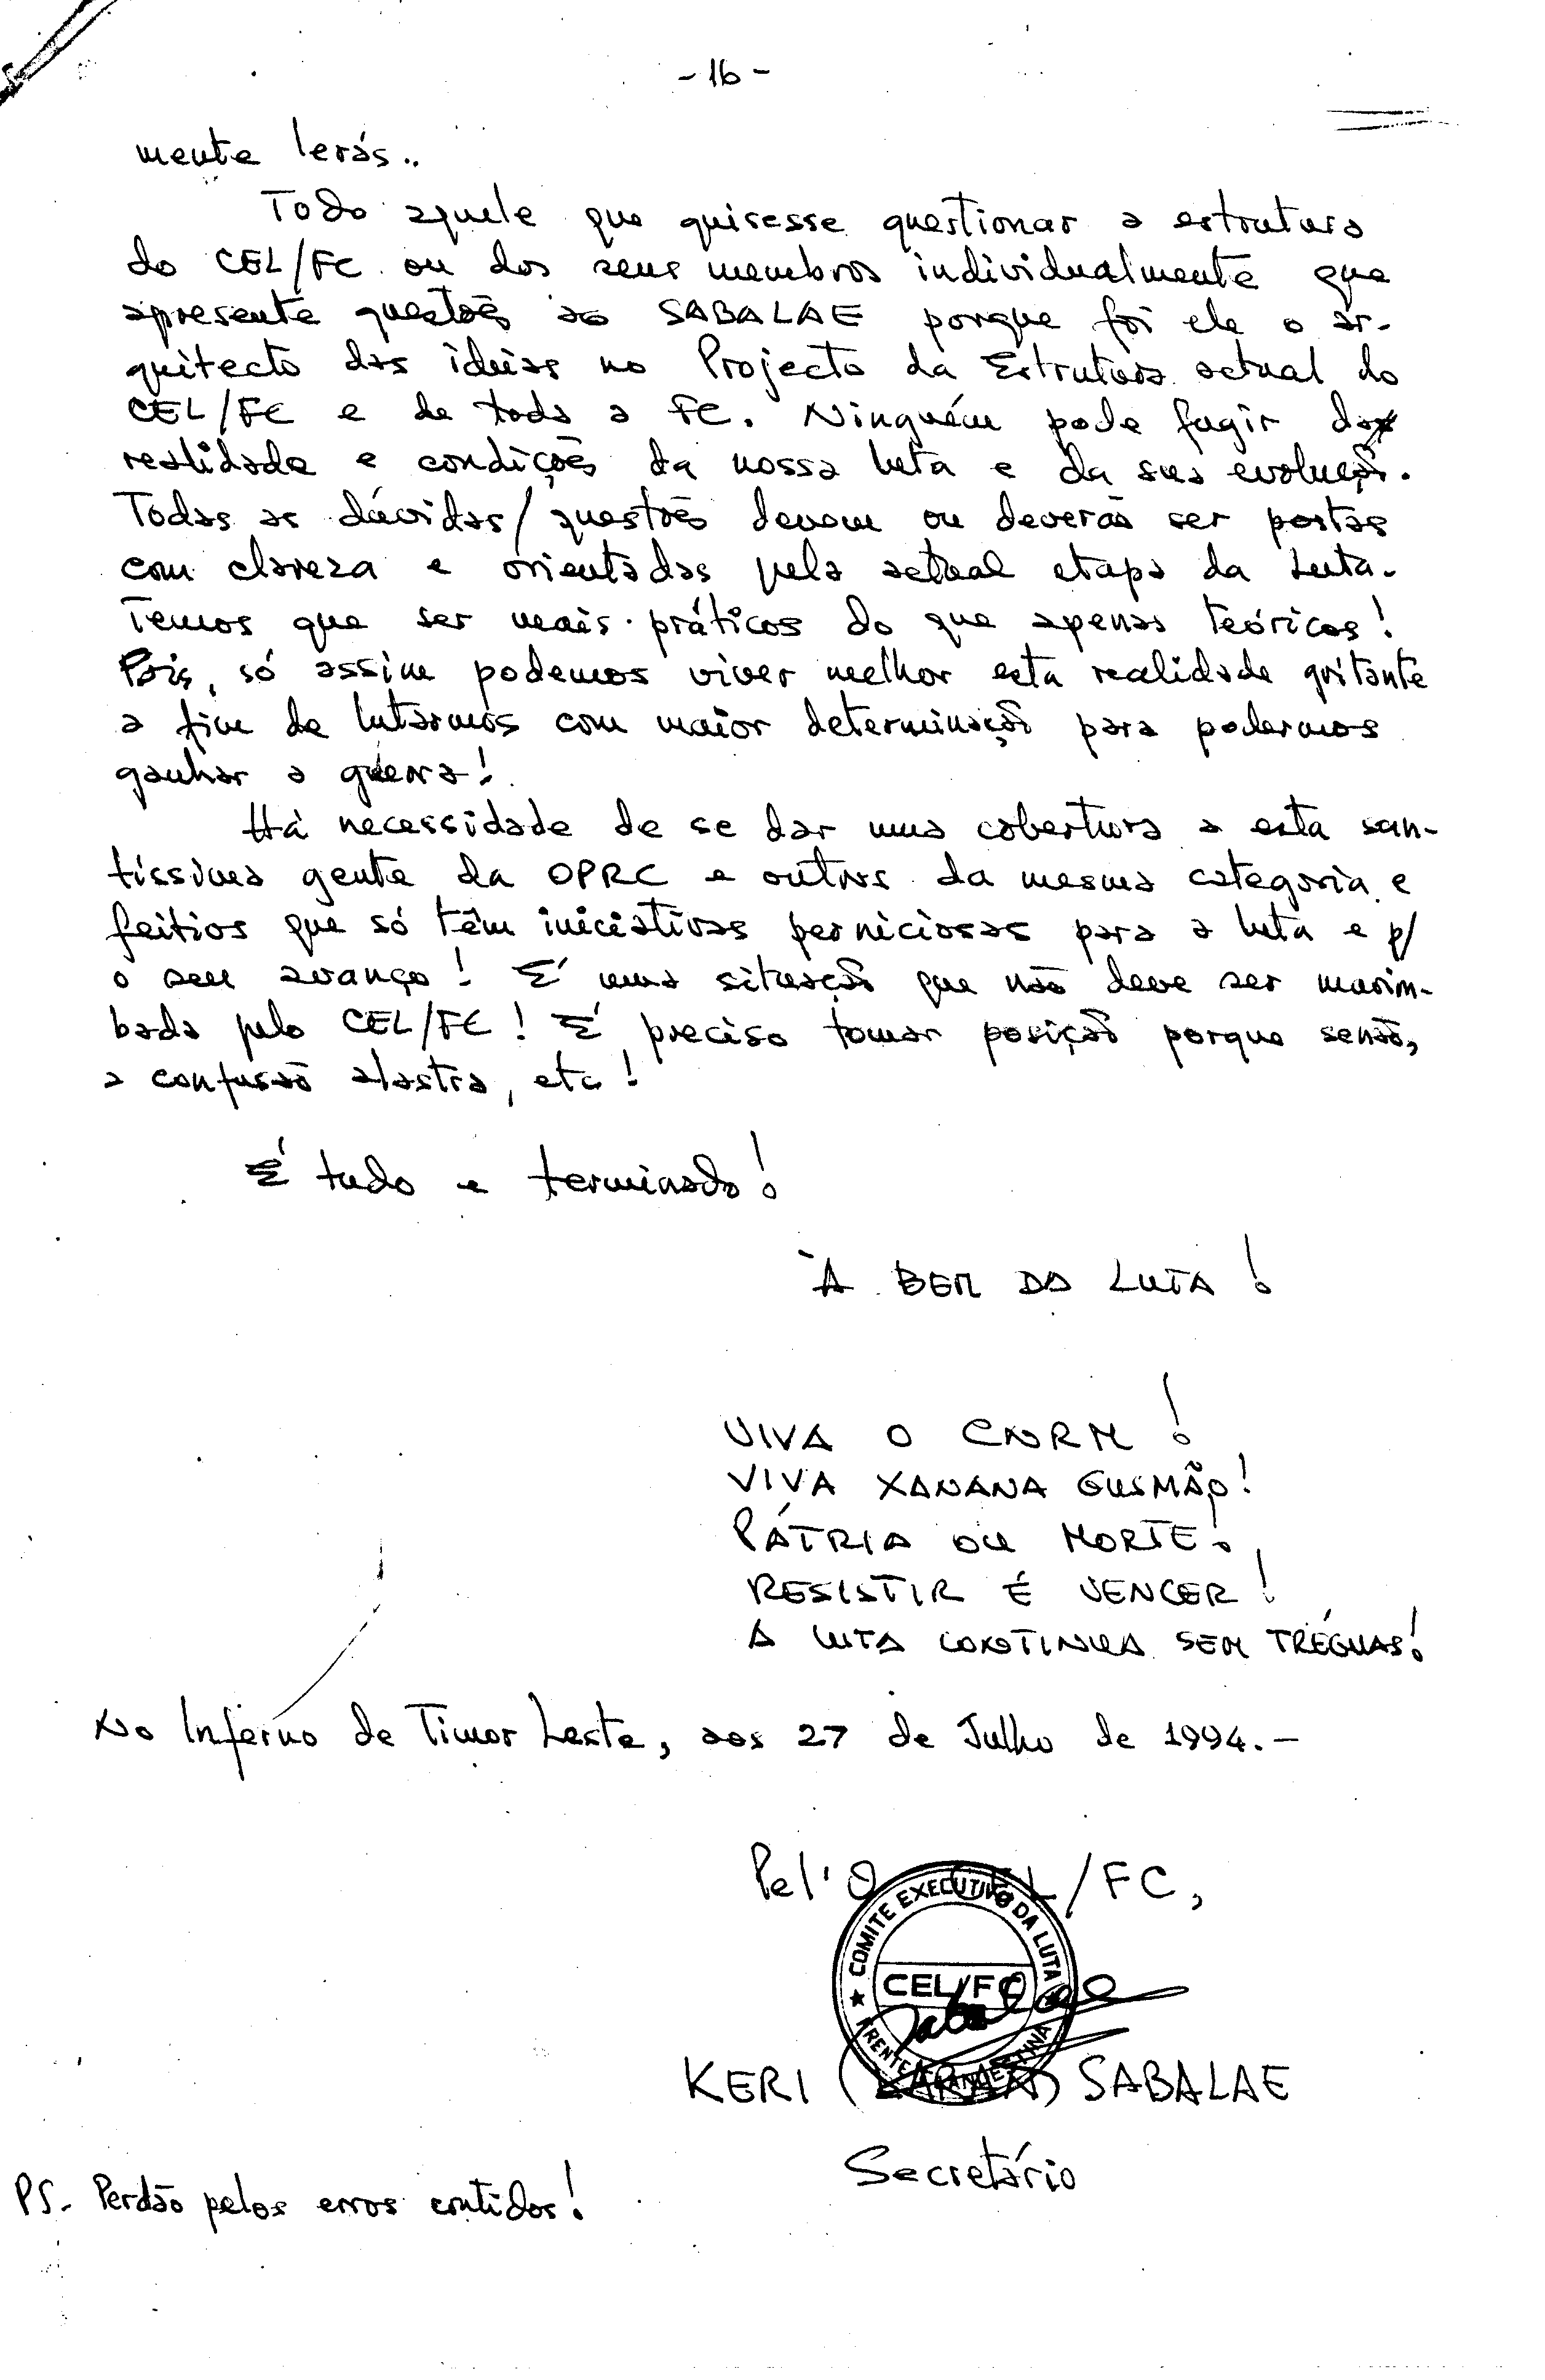 - 16 -
mente lerás..
Todo aquele que quisesse questionar a estrutura
do CEL/FC ou dos seus membros individualmente que
apresente questões ao SABALAE porque foi ele o ar-
quitecto das ideias no Projecto da Estrutura actual do
CEL/FC e de toda a FC. Ninguém pode fugir da
realidade e condições da nossa luta e da sua evolução.
Todas as dúvidas/questões devem ou deverão ser postas
com clareza e orientadas pela actual etapa da Luta.
Temos que ser mais práticos do que apenas teóricos!
Pois, só assim podemos viver melhor esta realidade gritante
a fim de lutarmos com maior determinação para podermos
ganhar a guerra!
Há necessidade de se dar uma cobertura a esta san-
tíssima gente da OPRC e outros da mesma categoria e
feitios que só têm iniciativas perniciosas para a luta e p/
o seu avanço! É uma situação que não deve ser marim-
bada pelo CEL/FC! É preciso tomar posição porque senão,
a confusão alastra, etc!
É tudo e terminado!
À BEM DA LUTA!
VIVA O CNRM!
VIVA XANANA GUSMÃO!
PÁTRIA OU MORTE!
RESISTIR É VENCER!
A LUTA CONTINUA SEM TRÉGUAS!
No Inferno de Timor Leste, aos 27 de Julho de 1994.-
Pel'O CEL/FC,
COMITE EXECUTIVO DA LUTA
CEL/FC
FRENTE CLANDESTINA
Sabalae
KERI ( ) SABALAE
Secretário
PS. Perdão pelos erros contidos!